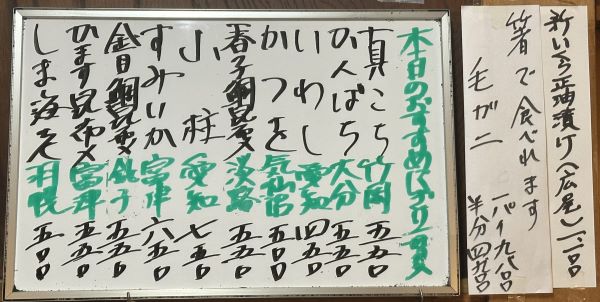 新いくら正油漬け(広尾)
箸で食べれます
毛ガニ 一パイ九八〇〇
半分四九〇〇
本日のおすすめにぎり一貫
真こち 竹岡 五五〇
かんぱち 大分 五五〇
いわし 愛知 四五〇
かつを 気仙沼 五五〇
春子鯛昆〆 淡路 五五〇
小柱 愛知 七五〇
すみいか 富津 六五〇
金目鯛昆〆 銚子 五五〇
かます昆布〆 富津 五五〇
しま海老 羽幌 五〇〇